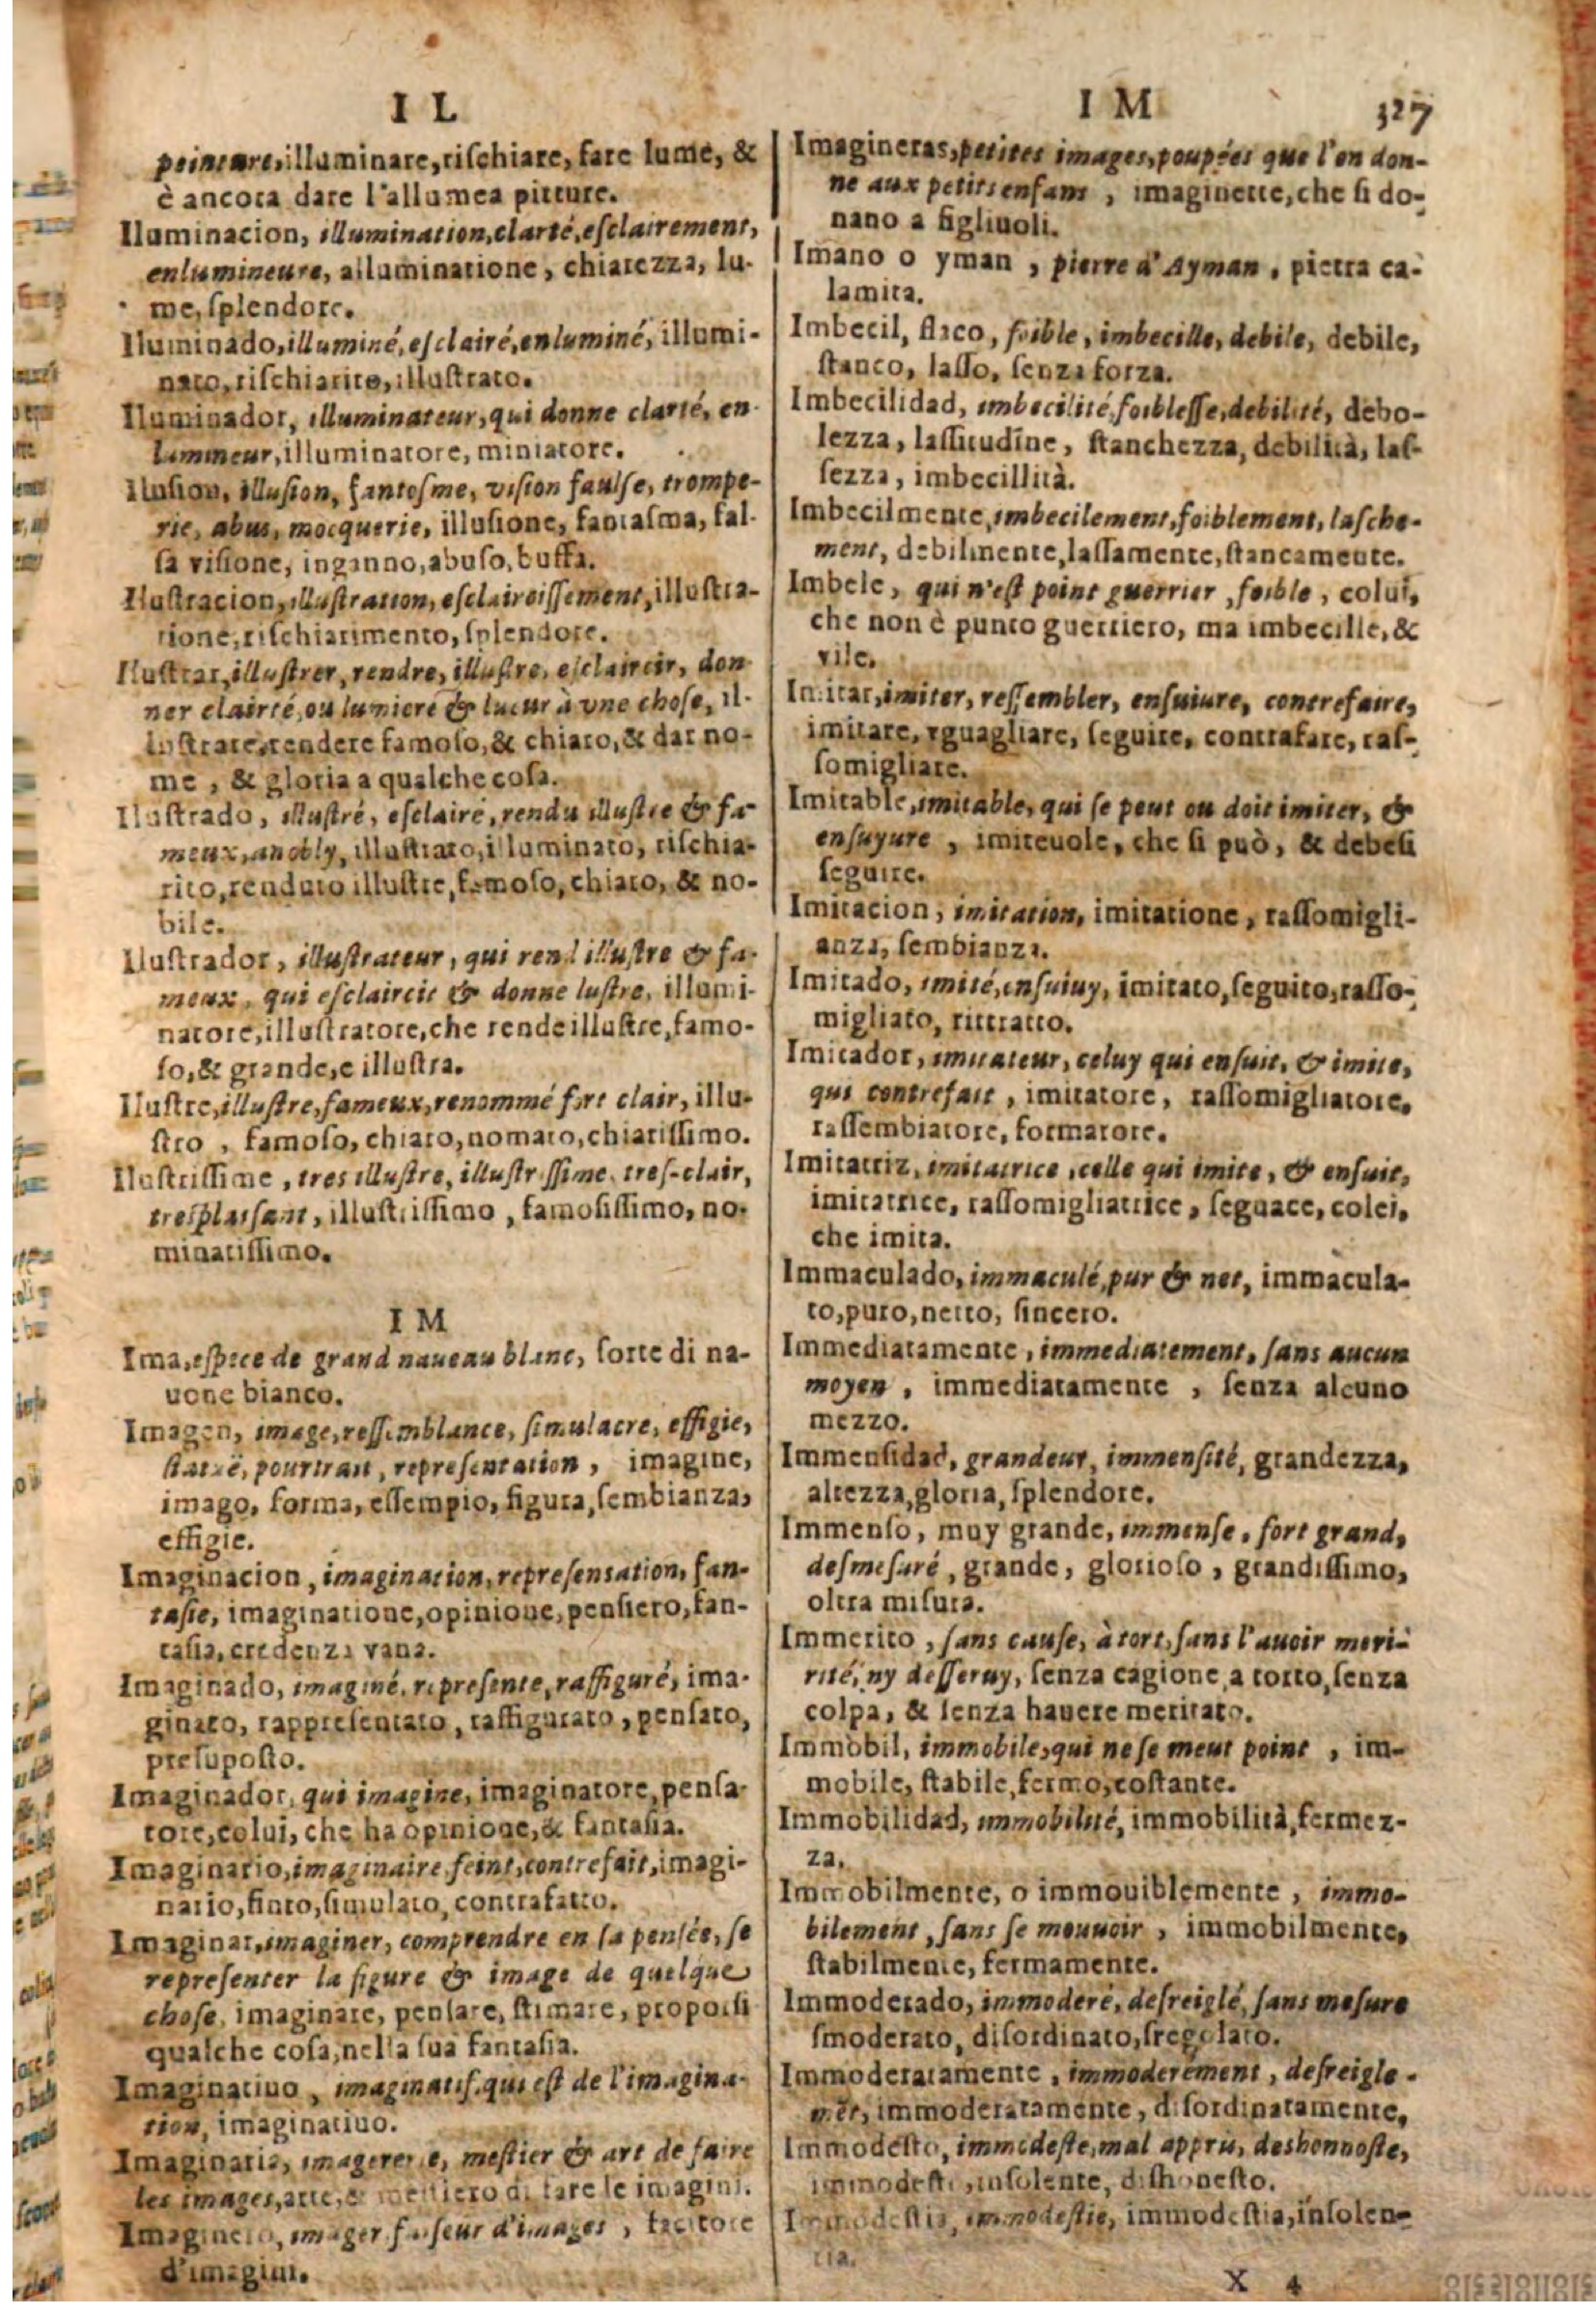 I L
peinture, illuminare, rischiare, fare lume, &
è ancora dare l'allumea pitture.
Iluminacion, illumination, clarté, esclairement,
enlumineure, alluminatione, chiarezza, lu-
me, splendore.
Iluminado, illuminé, esclairé, enluminé, illumi-
nato, rischiarito, illustrato.
Iluminador, illuminateur, qui donne clarté, en-
lumineur, illuminatore, miniatore.
Ilusion, illusion, fantosme, vision faulse, trompe-
rie, abus, mocquerie, illusione, fantasma, fal-
sa visione, inganno, abuso, buffa.
Ilustracion, illustration, esclaircissement, illustra-
tione, rischiarimento, splendore.
Ilustrar, illustrer, rendre, illustre, esclaircir, don-
ner clairté, ou lumiere & lueur à vne chose, il-
lustrare, rendere famoso, & chiaro, & dar no-
me, & gloria a qualche cosa.
Ilustrado, illustré, esclairé, rendu illustre & fa-
meux, anobly, illustrato, illuminato, rischia-
rito, renduto illustre, famoso, chiaro, & no-
bile.
Ilustrador, illustrateur, qui rend illustre & fa-
meux, qui esclaircit & donne lustre, illumi-
natore, illustratore, che rende illustre, famo-
so, & grande, e illustra.
Ilustre, illustre, fameux, renommé fort clair, illu-
stro, famoso, chiaro, nomato, chiarissimo.
Ilustrissime, tres illustre, illustrissime, tres-clair,
tresplaisant, illustrissimo, famosissimo, no-
minatissimo.
I M
Ima, espece de grand naueau blanc, sorte di na-
uone bianco.
Imagen, image, ressemblance, simulacre, effigie,
statuë, pourtrait, representation, imagine,
imago, forma, essempio, figura, sembianza,
effigie.
Imaginacion, imagination, representation, fan-
tasie, imaginatione, opinione, pensiero, fan-
tasia, credenza vana.
Imaginado, imaginé, represente, raffiguré, ima-
ginato, rappresentato, raffigurato, pensato,
presuposto.
Imaginador, qui imagine, imaginatore, pensa-
tore, colui, che ha opinione, & fantasia.
Imaginario, imaginaire, feint, contrefait, imagi-
nario, finto, simulato, contrafatto.
Imaginar, imaginer, comprendre en sa pensée, se
representer la figure & image de quelque
chose, imaginare, pensare, stimare, proporsi
qualche cosa, nella sua fantasia.
Imaginatiuo, imaginatif, qui est de l'imagina-
tion, imaginatiuo.
Imaginaria, imagererie, mestier & art de faire
les images, arte, & mestiero di fare le imagini.
Imaginero, imager, faiseur d'images, facitore
d'imagini.
I M 327
Imagineras, petites images, poupées que l'on don-
ne aux petits enfans, imaginette, che si do-
nano a figliuoli.
Imano o yman, pierre d'Ayman, pietra ca-
lamita.
Imbecil, flaco, foible, imbecille, debile, debile,
stanco, lasso, senza forza.
Imbecilidad, imbecilité, foiblesse, debilité, debo-
lezza, lassitudine, stanchezza, debilità, las-
sezza, imbecillità.
Imbecilmente, imbecilement, foiblement, lasche-
ment, debilmente, lassamente, stancamente.
Imbele, qui n'est point guerrier, foible, colui,
che non è punto guerriero, ma imbecille, &
vile.
Imitar, imiter, ressembler, ensuiure, contrefaire,
imitare, vguagliare, seguire, contrafare, ras-
somigliare.
Imitable, imitable, qui se peut ou doit imiter, &
ensuyure, imiteuole, che si può, & debesi
seguire.
Imitacion, imitation, imitatione, rassomigli-
anza, sembianza.
Imitado, imité, ensuiuy, imitato, seguito, rasso-
migliato, rittratto.
Imitador, imitateur, celuy qui ensuit, & imite,
qui contrefait, imitatore, rassomigliatore,
rassembiatore, formatore.
Imitatriz, imitatrice, celle qui imite, & ensuit,
imitatrice, rassomigliatrice, seguace, colei,
che imita.
Immaculado, immaculé, pur & net, immacula-
to, puro, netto, sincero.
Immediatamente, immediatement, sans aucun
moyen, immediatamente, senza alcuno
mezzo.
Immensidad, grandeur, immensité, grandezza,
altezza, gloria, splendore.
Immenso, muy grande, immense, fort grand,
desmesuré, grande, glorioso, grandissimo,
oltra misura.
Immerito, sans cause, à tort, sans l'auoir meri-
rité, ny desseruy, senza cagione, a torto, senza
colpa, & senza hauere meritato.
Immobil, immobile, qui ne se meut point, im-
mobile, stabile, fermo, costante.
Immobilidad, immobilité, immobilità, fermez-
za.
Immobilmente, o immouiblemente, immo-
bilement, sans se mouuoir, immobilmente,
stabilmente, fermamente.
Immoderado, immoderé, desreiglé, sans mesure
smoderato, disordinato, sregolato.
Immoderatamente, immoderement, desreigle-
mēt, immoderatamente, disordinatamente,
Immodesto, immodeste, mal appris, deshonneste,
immodesto, insolente, dishonesto.
Immodestia, immodestie, immodestia, insolen-
tia.
X 4